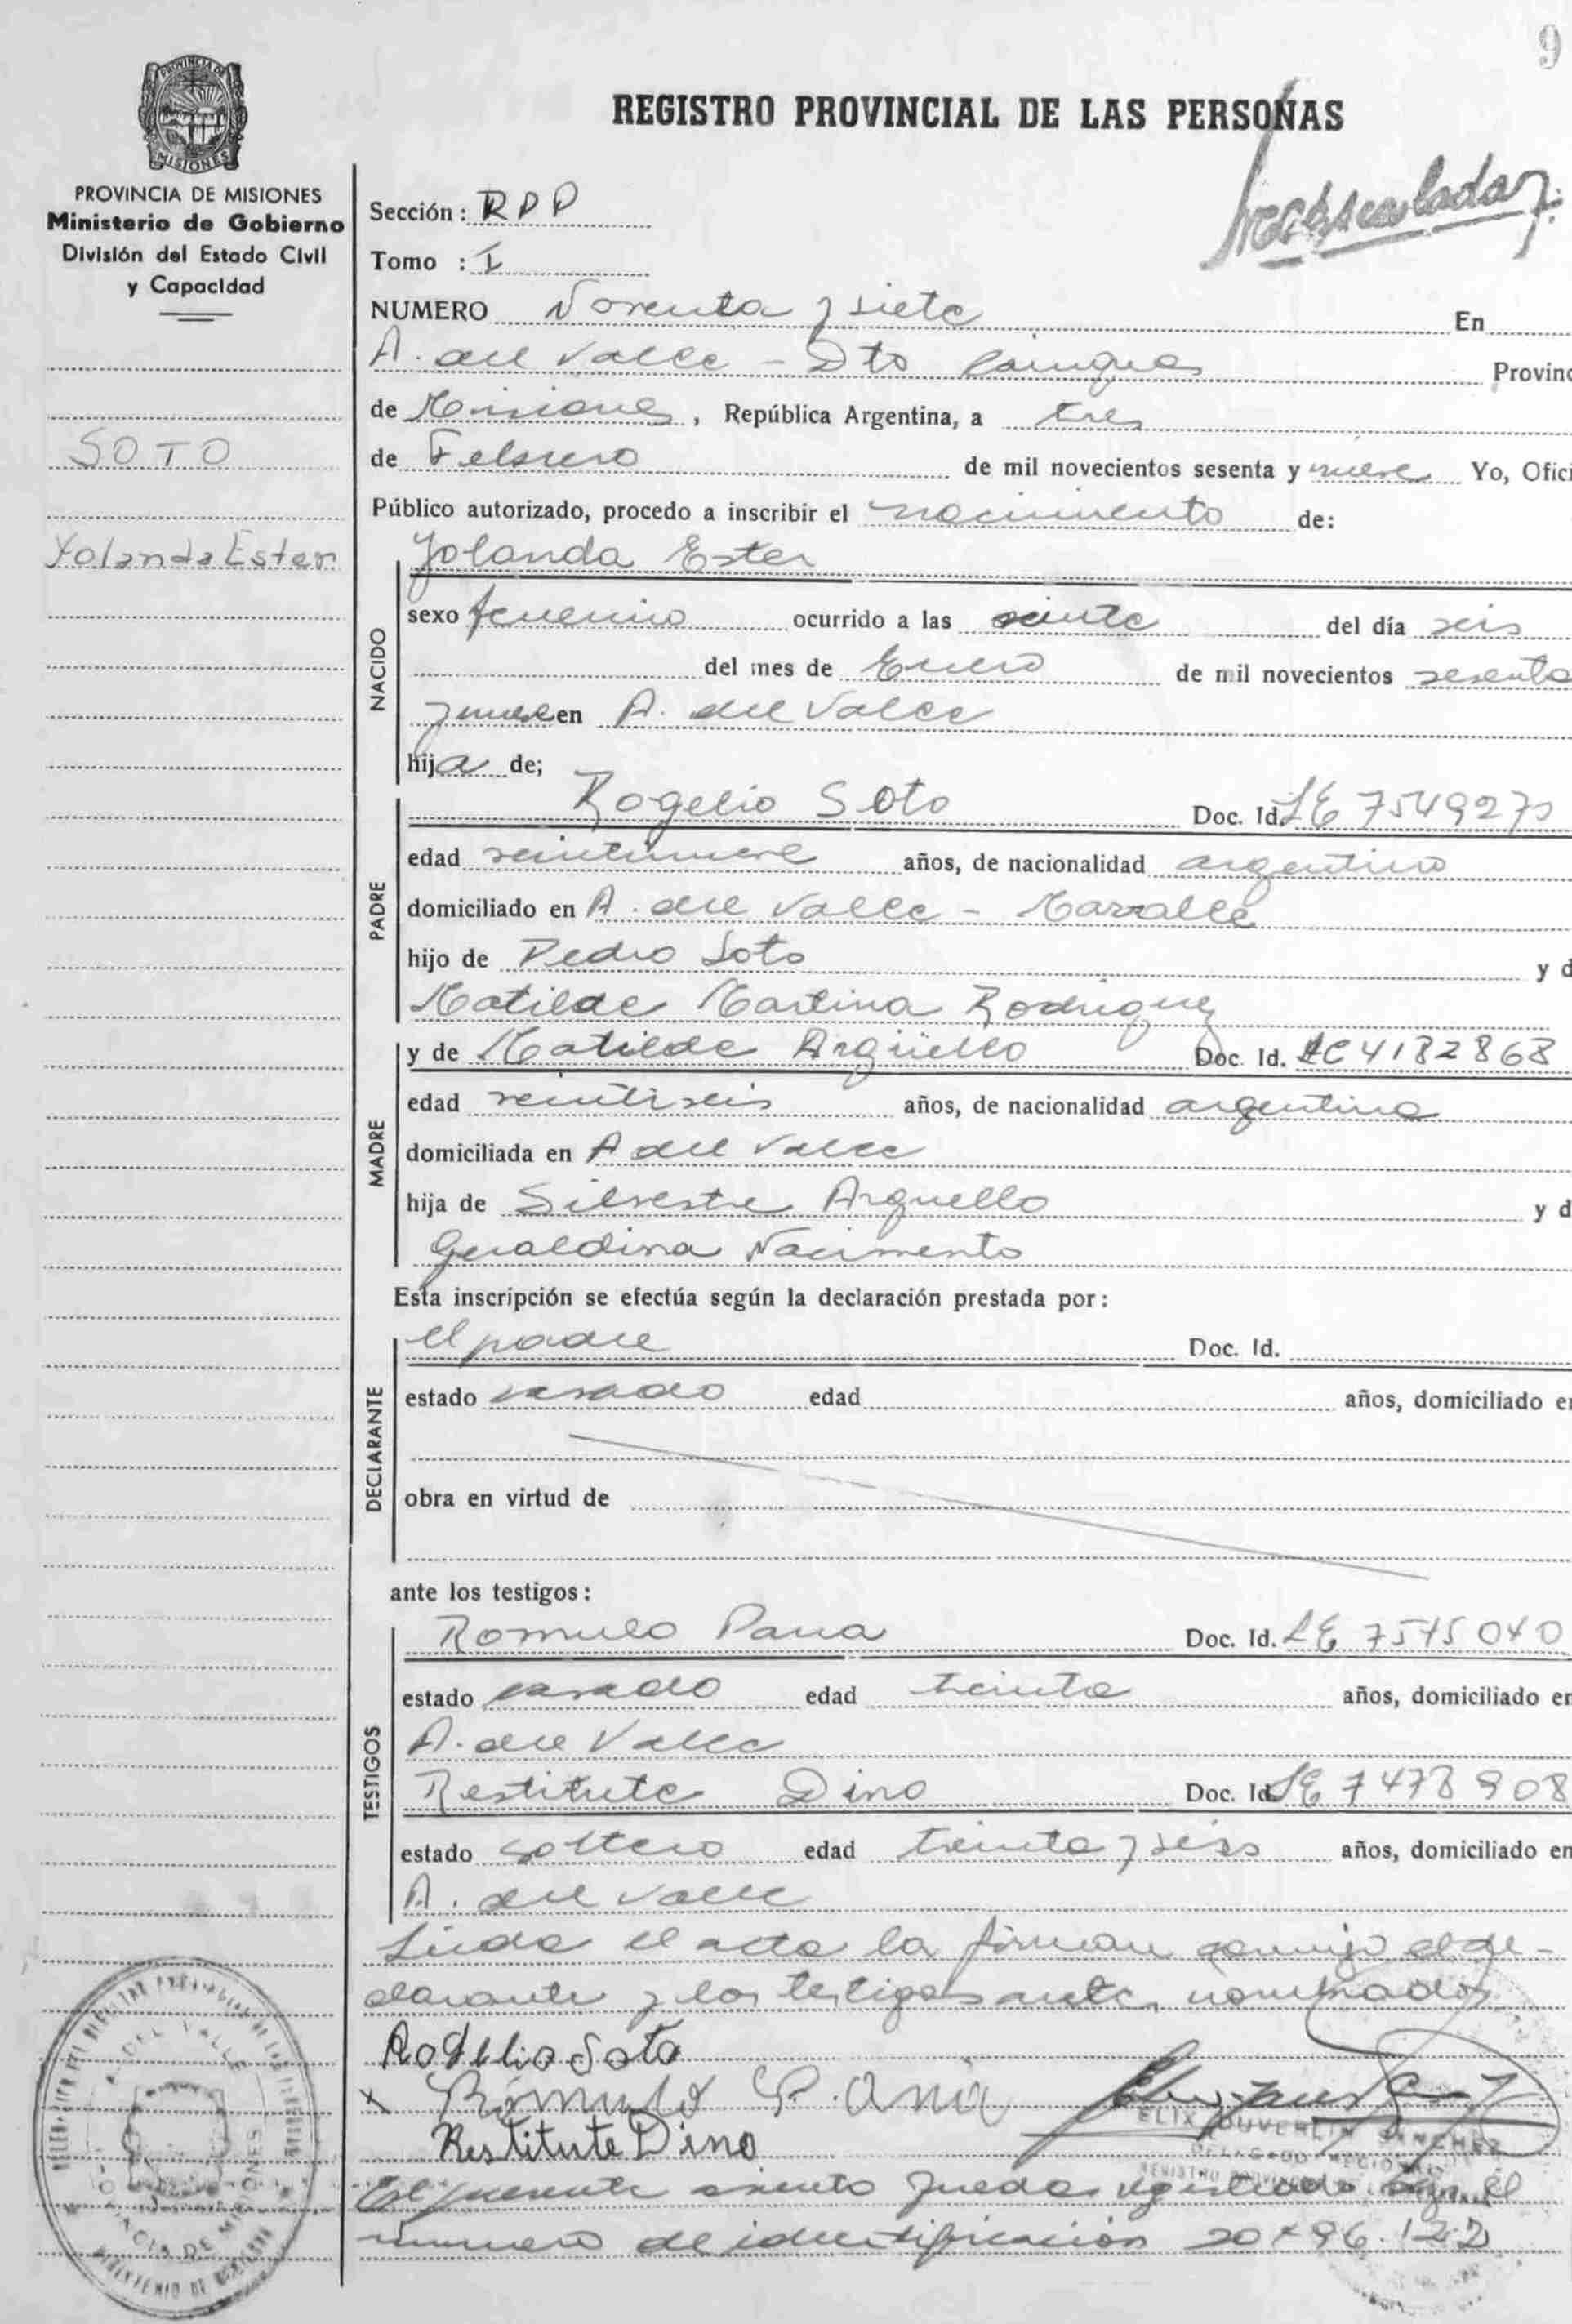 9
REGISTRO PROVINCIAL DE LAS PERSONAS
PROVINCIA DE MISIONES
MISIONES
PROVINCIA DE MISIONES
Ministerio de Gobierno
División del Estado Civil
y Capacidad
Sección: RPP
Tomo : I
NUMERO Noventa y siete En
A. del Valle - Dto Cainguas Provinc
de Misiones, República Argentina, a tres
SOTO
de Febrero de mil novecientos sesenta y nueve Yo, Ofici
Público autorizado, procedo a inscribir el nacimiento de:
Yolanda Ester
NACIDO
Yolanda Ester
sexo femenino ocurrido a las veinte del día seis
del mes de Enero de mil novecientos sesenta
y nueve en A. del Valle
hija de;
PADRE
Rogelio Soto Doc. Id. LE 7549270
edad veintinueve años, de nacionalidad argentino
domiciliado en A. del Valle -
hijo de Pedro Soto y d
Matilde Martina Rodriguez
MADRE
y de Matilde Argüello Doc. Id. LC 4182868
edad veintiseis años, de nacionalidad argentina
domiciliada en A del Valle
hija de Silvestre Arguello y d
Geraldina Nacimento
Esta inscripción se efectúa según la declaración prestada por:
DECLARANTE
el padre Doc. Id.
estado casado edad años, domiciliado en
obra en virtud de
ante los testigos:
TESTIGOS
Romulo Pana Doc. Id. LE 7575040
estado casado edad treinta años, domiciliado en
A. del Valle
Restitute Dino Doc. Id. LE 7478908
estado soltero edad treinta y seis años, domiciliado en
A. del Valle
Leida el acta la firman conmigo el de-
clarante y los testigos antes nombrados
Rogelio Soto
x Rómulo P. Ana
Restitute Dino
FELIX DUVERLIN SANCHEZ
DELEGADO REGIONAL
REGISTRO PROVINCIAL
El presente asiento queda registrado bajo el
numero de identificación 20496.122
A. DEL VALLE
PROVINCIA DE MISIONES
MINISTERIO DE GOBIERNO